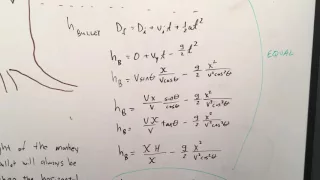 h_Bullet D_f = D_i + v_i t + 1/2 at²
h_B = 0 + v_y t - g/2 t²
h_B = V sinθ x/(V cosθ) - g/2 x²/(V² cos²θ)
h_B = Vx/V sinθ/cosθ - g/2 x²/(V² cos²θ)
h_B = VX/V tanθ - g/2 x²/(V² cos²θ)
h_B = X H/X - g/2 x²/(V² cos²θ)
EQUAL
ght of the monkey
llet will always be
the horizontal